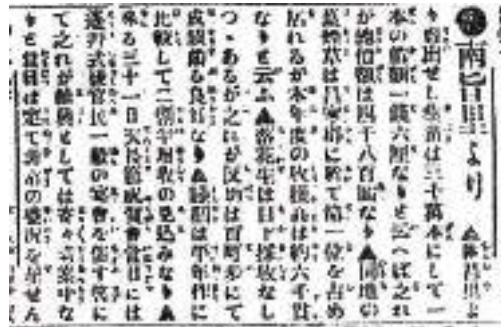 南旨里より ▲旨里よ
り輸出せし生苗は三十萬本にして一
本の價額一錢六厘なりと云へば之れ
が總價額は四千八百圓なり▲同地の
葉煙草は郡に於て第一位を占め
居れるが本年度の收穫高は約六千貫
なりと云ふ▲落花生は目下採收なし
つゝあるが之れが反別は百町步にて
成績頗る良好なり▲は平年作に
比較して二割半增收の見込みなり▲
來る三十一日天長節祝賀會當日には
遙拜式後官民一般の宴會を催す筈に
て之れが餘興としては寄々考案中な
りと當日は定て非常の盛況を呈せん